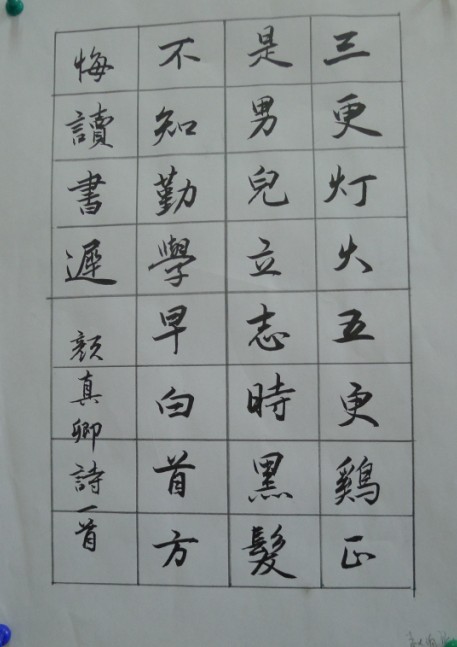 三更灯火五更鷄正
是男兒立志時黑髮
不知勤學早白首方
悔讀書遲
顔真卿詩一首